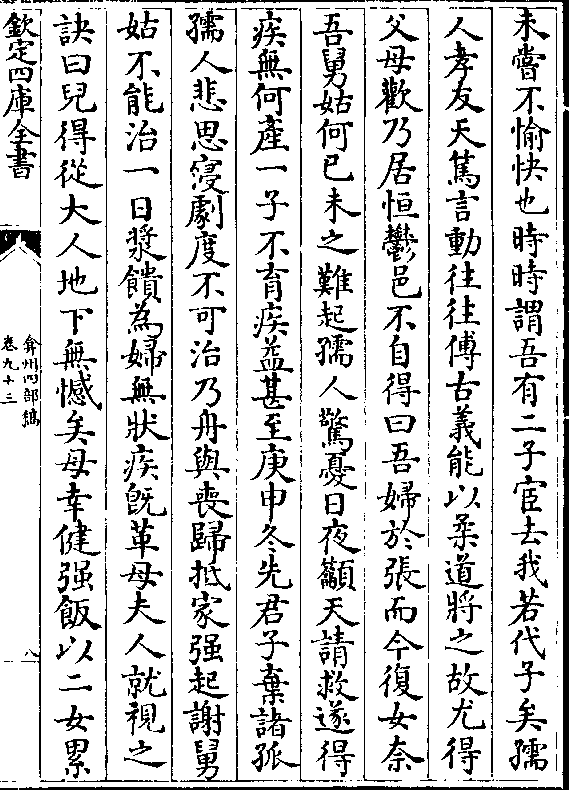 未嘗不愉快也時時謂吾有二子宦去我若代子矣孺
人孝友天篤言動往往傅古義能以柔道將之故尤得
父母歡乃居恒鬱邑不自得曰吾婦於張而今復女奈
吾舅姑何已未之難起孺人驚憂日夜籲天請救遂得
疾無何產一子不育疾益甚至庚申冬先君子棄諸孤
孺人悲思寖劇度不可治乃舟與喪歸抵家强起謝舅
姑不能治一日漿饋為婦無狀疾既革母夫人就視之
訣曰兒得從大人地下無憾矣母幸健强飯以二女累
欽定四庫全書
弇州四部稿
卷九十三
八